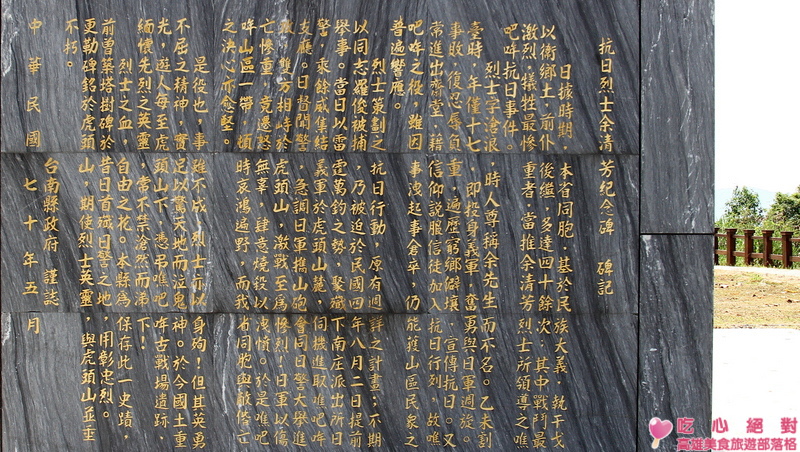 抗日烈士余清芳紀念碑 碑記
日據時期，本省同胞，基於民族大義，執干戈
以衛鄉土，前仆後繼，多達四十餘次，其中戰鬥最
激烈，犧牲最慘重者，當推余清芳烈士所領導之噍
吧哖抗日事件。
烈士字滄浪，時人尊稱余先生而不名。乙未割
臺時，年僅十七，即投身義軍，奮勇與日軍週旋。
事敗，復忍辱負重，遍歷窮鄉僻壤，宣傳抗日。又
常進出齋堂，藉信仰說服信徒加入抗日行列，故噍
吧哖之役，雖因事洩起事倉卒，仍能獲山區民眾之
普遍響應。
烈士策劃之抗日行動，原有週詳之計畫；不期
以同志羅俊被捕，乃被迫於民國四年八月二日提前
舉事。當日以雷霆萬鈞之勢，聚殲下南庄派出所日
警，乘餘威集結義軍於虎頭山麓，伺機進取噍吧哖
支廳。日督聞警，急調日軍攜山砲會同日警大舉進
攻，雙方相峙於虎頭山，激戰至為慘烈！日軍以傷
亡慘重，竟遷怒無辜，肆意燒殺以洩憤。於是噍吧
哖山區一帶，頓時哀鴻遍野，而我省同胞與敵偕亡
之決心亦愈堅。
是役也，事雖不成，烈士亦以身殉！但其英勇
不屈之精神，實足以驚天地而泣鬼神。於今國土重
光，遊人每至虎頭山下，憑弔噍吧哖古戰場遺跡，
緬懷先烈之英靈，常不禁滄然而涕下！
烈士之血，自由之花。本縣為保存此一史蹟，
前曾築塔樹碑於昔日首殲日警之地，用彰忠烈。
更勒碑銘於虎頭山，期使烈士英靈，與虎頭山並垂
不朽。
台南縣政府 謹誌
中華民國七十年五月
吃心絕對
高雄美食旅遊部落格